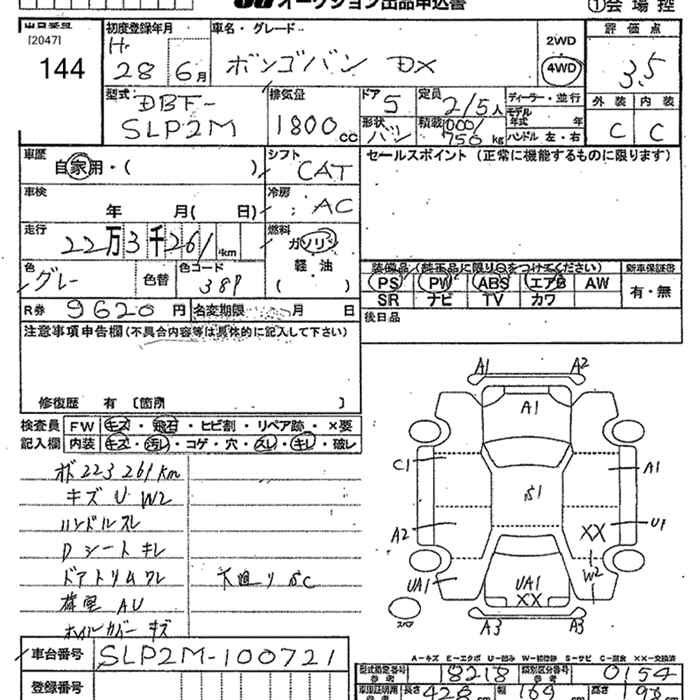 オークション出品申込書
①会場控
出品番号
[2047]
144
初度登録年月
H
28 6月
車名・グレード
ボンゴバン DX
2WD
4WD
評価点
3.5
外装 内装
C C
型式
DBF-
SLP2M
排気量
1800cc
ドア 5
形状 バン
定員 2/5人
積載 1000/
750kg
ディーラー・並行
モデル年式 年
ハンドル 左・右
車歴
自家用・( )
シフト
CAT
セールスポイント (正常に機能するものに限ります)
車検
年 月( 日)
冷房
AC
走行
22万3千261km
燃料
ガソリン
軽油
( )
色
グレー
色替
色コード
38P
装備品(装正品に限り○をつけてください)
新車保証書
PS PW ABS エアB AW
SR ナビ TV カワ
有・無
R券 9620円
名変期限 月 日
後日品
注意事項申告欄(不具合内容等は具体的に記入して下さい)
修復歴 有 [箇所 ]
検査員 FW キズ・飛石・ヒビ割・リペア跡・×要
記入欄 内装 キズ・汚れ・コゲ・穴・スレ・キレ・破レ
メーター 223261km
キズ U W2
ハンドルスレ
Dシートキレ
ドアトリムワレ
下廻りSC
荷室 AU
ホイルカバーキズ
A1 A2
A1
C1
A1
S1
A2
XX
U1
W2
UA1
UA1
XX
スペア
A3 A3
A-キズ E-エクボ U-凹み W-補修跡 S-サビ C-腐食 XX-交換済
車台番号 SLP2M-100721
型式指定番号 参考 18218
類別区分番号 参考 0154
登録番号
車庫証明用 参考
長さ 428cm
幅 169cm
高さ 198cm